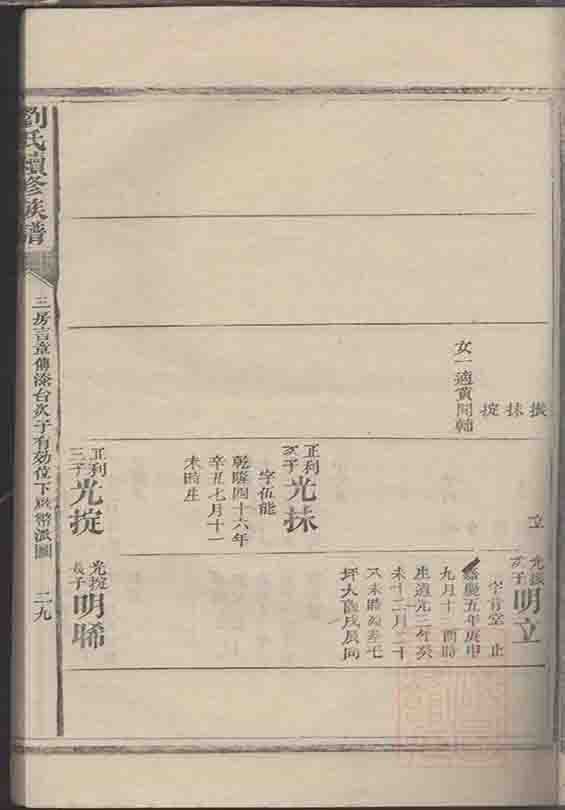 劉氏續修族譜
三房言章傳添台次子有効位下啟幣派圖
二九
振
抹
掟
女一適黃開輔
立
正利次子
光抹
字伍能
乾隆四十六年
辛丑七月十一
未時生
正利三子
光掟
光振次子
明立
字肯堂 止
嘉慶五年庚申
九月十二酉時
生道光三年癸
未十二月二十
六未時
戌辰向
光掟長子
明晞